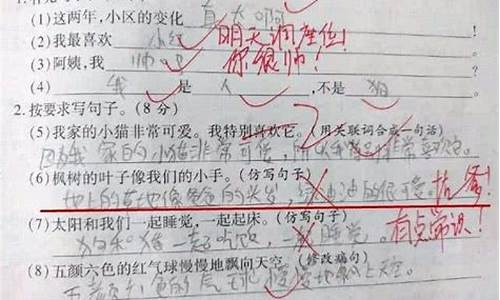 (1)这两年,小区的变化 真大啊
(2)我最喜欢 小红 明天调座位!
(3)阿姨,我 帅吧 你很帅!
(4) 我 是 人 ,不是 狗
2.按要求写句子。(8 分)
(5)我家的小猫非常可爱。我特别喜欢它。(用关联词合成一句话)
因为我家的小猫非常可爱,所以我特别非常喜欢它。
(6)枫树的叶子像我们的小手。(仿写句子)
地上的草地像爸爸的头发,绿油油的很可爱。
(7)太阳和我们一起睡觉,一起起床。(仿写句子) 有点常识!
狗和猪一起吃饭,一起睡觉。
(8)五颜六色的红气球慢慢地飘向天空。(修改病句)
五颜六色的气球慢慢地飘上天空。